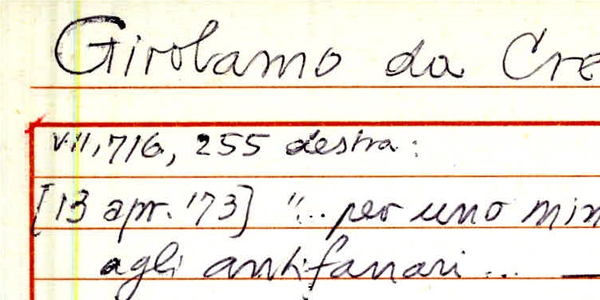 Girolamo da Cre
VII, 716, 255 destra:
[13 apr. '73] "... per uno min
agli antifanari ... —